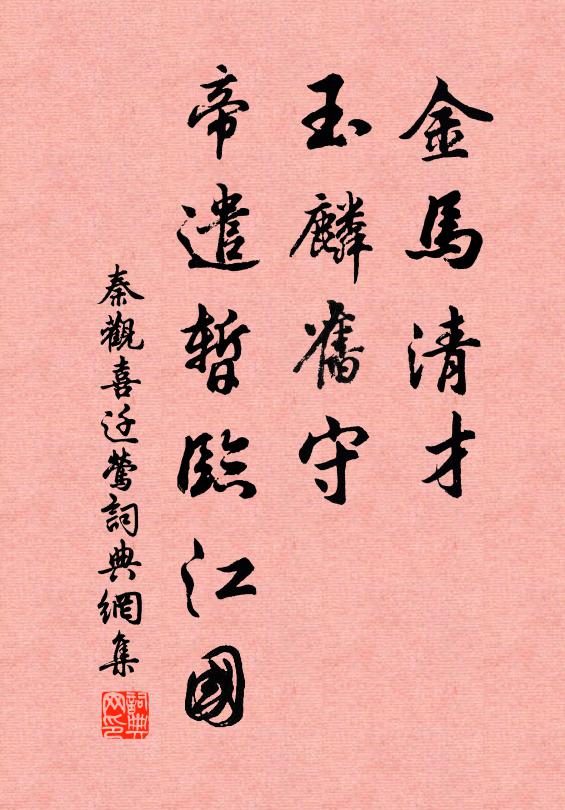 金馬清才
玉麟舊守
帝遣暫臨江國
秦觀喜迁鶯詞典網集
詞典网印